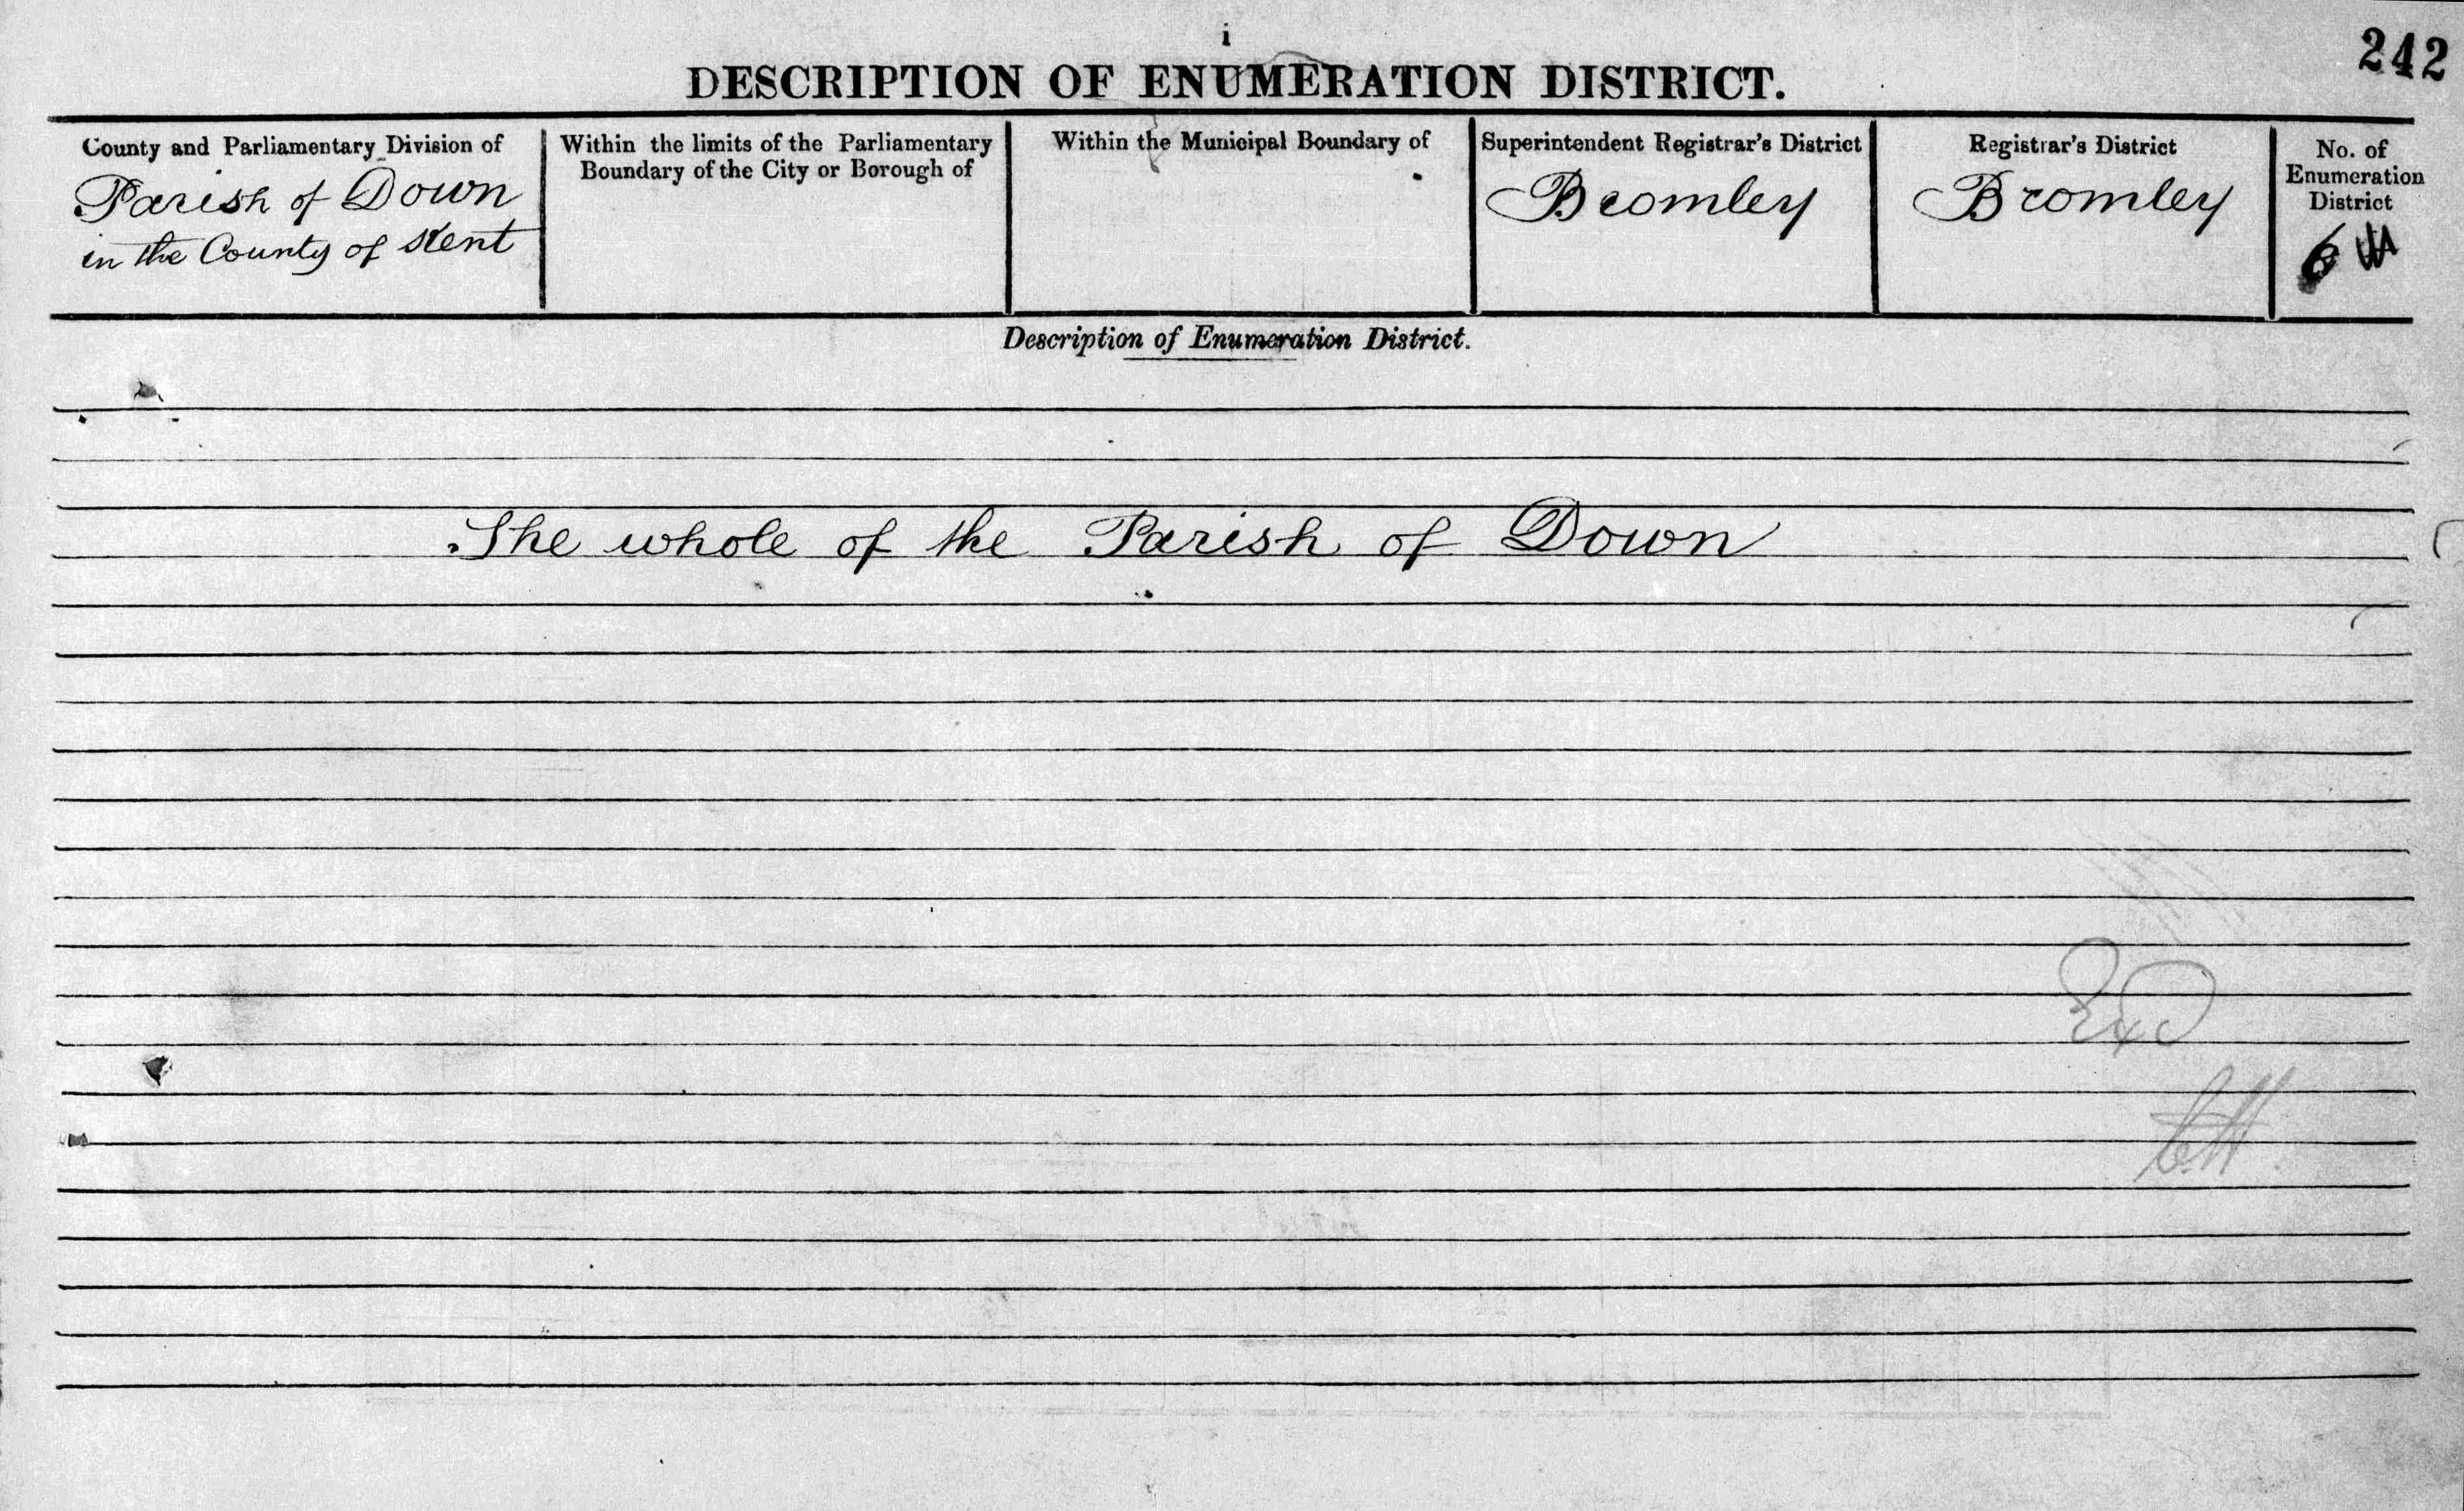 i
242
DESCRIPTION OF ENUMERATION DISTRICT.
County and Parliamentary Division of
Parish of Down
in the County of Kent
Within the limits of the Parliamentary
Boundary of the City or Borough of
Within the Municipal Boundary of
Superintendent Registrar's District
Bromley
Registrar's District
Bromley
No. of
Enumeration
District
6
Description of Enumeration District.
The whole of the Parish of Down